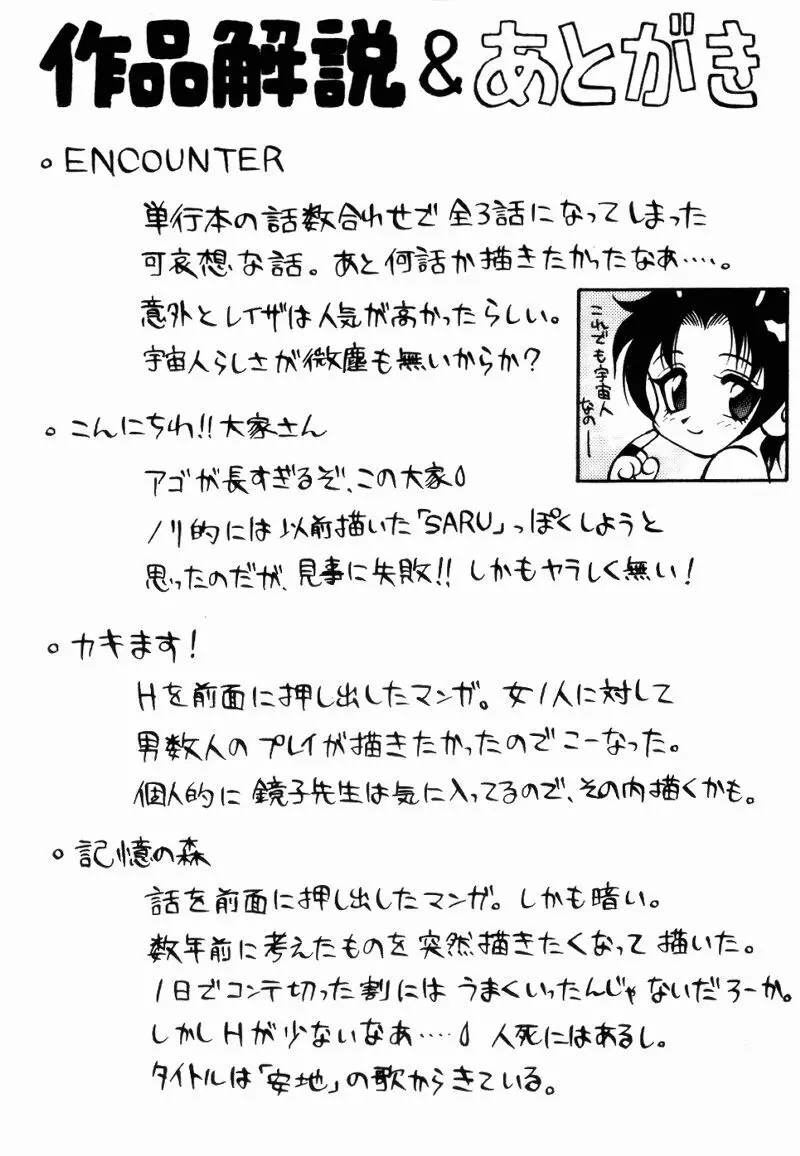 作品解説&あとがき
。ENCOUNTER
単行本の話数合わせで全3話になってしまった
可哀想な話。あと何話か描きたかったなあ……。
意外とレイザは人気が高かったらしい。
宇宙人らしさが微塵も無いからか?
これでも宇宙人
なのー
。こんにちわ!!大家さん
アゴが長すぎるぞ、この大家
ノリ的には以前描いた「SARU」っぽくしようと
思ったのだが、見事に失敗!!しかもヤラしく無い!
。カキます!
Hを前面に押し出したマンガ。女1人に対して
男数人のプレイが描きたかったのでこーなった。
個人的に鏡子先生は気に入ってるので、その内描くかも。
。記憶の森
話を前面に押し出したマンガ。しかも暗い。
数年前に考えたものを突然描きたくなって描いた。
1日でコンテ切った割にはうまくいったんじゃないだろーか。
しかしHが少ないなあ……人死にはあるし。
タイトルは「安地」の歌からきている。